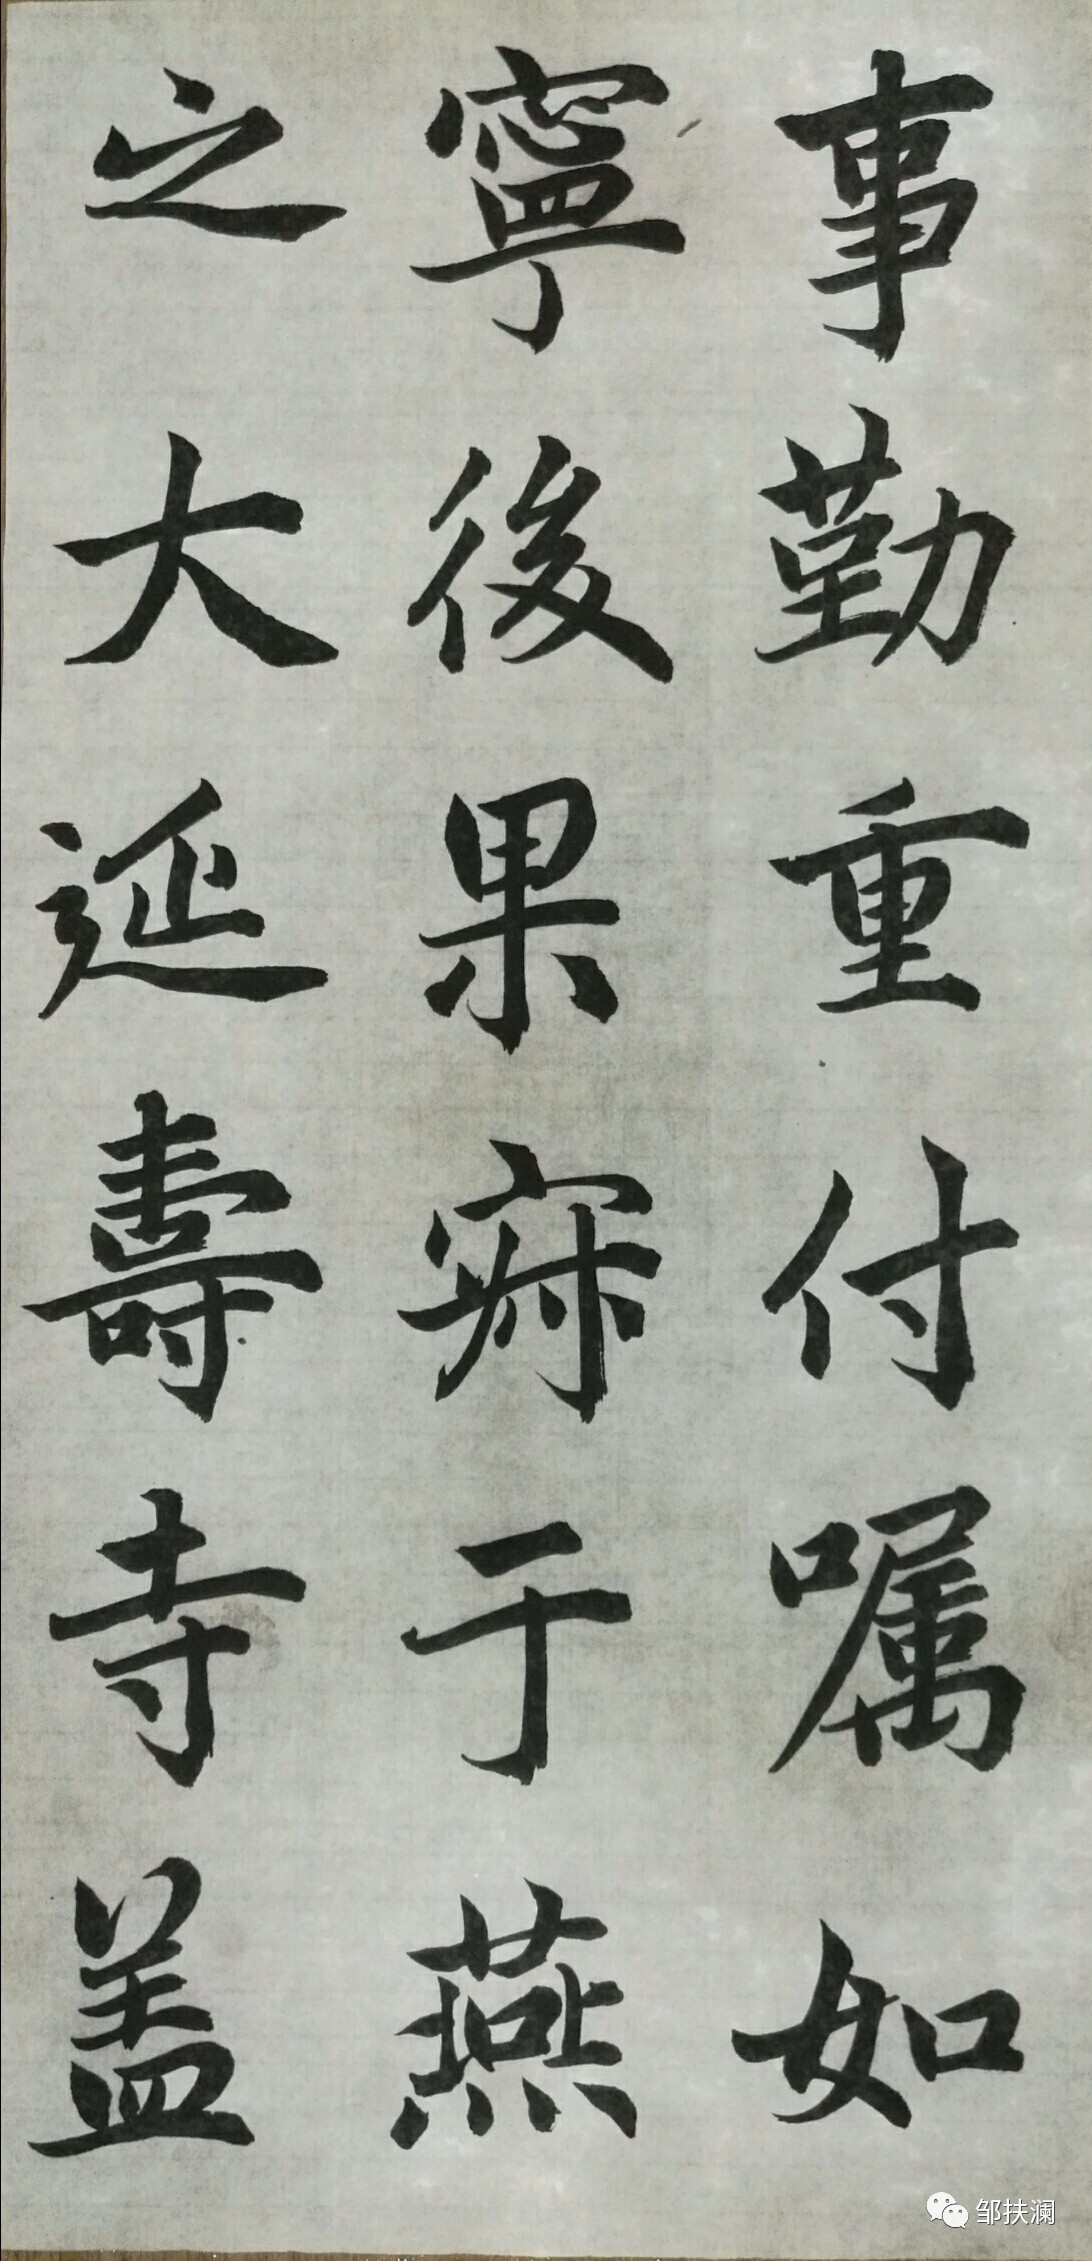 事勤重付嘱如
寧後果寂于燕
之大延壽寺盖
邹扶澜